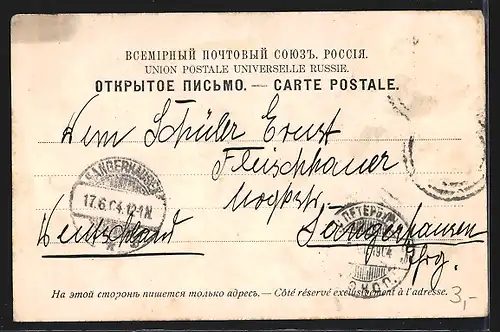 ВСЕМІРНЫЙ ПОЧТОВЫЙ СОЮЗЪ. РОССІЯ.
UNION POSTALE UNIVERSELLE RUSSIE.
ОТКРЫТОЕ ПИСЬМО. — CARTE POSTALE.
Dem Schüler Ernst
Fleischhauer
SANGERHAUSEN
17.6.04.12-1N
Deutschland
Sangerhausen
На этой сторонѣ пишется только адресъ. — Côté réservé exclusivement à l'adresse.
3,-